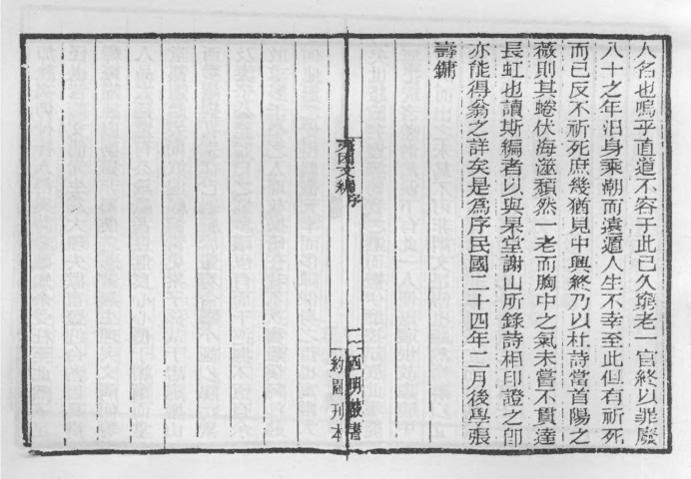 人名也嗚乎直道不容于此已久窮老一官終以罪廢
八十之年汨身乘潮而遠遁人生不幸至此但有祈死
而已反不祈死庶幾猶見中興終乃以杜詩當首陽之
薇則其蜷伏海澨頹然一老而胸中之氣未嘗不貫達
長虹也讀斯編者以與杲堂謝山所錄詩相印證之卽
亦能得翁之詳矣是爲序民國二十四年二月後學張
壽鏞
夷困文編序
二
四明叢書
約園刊本